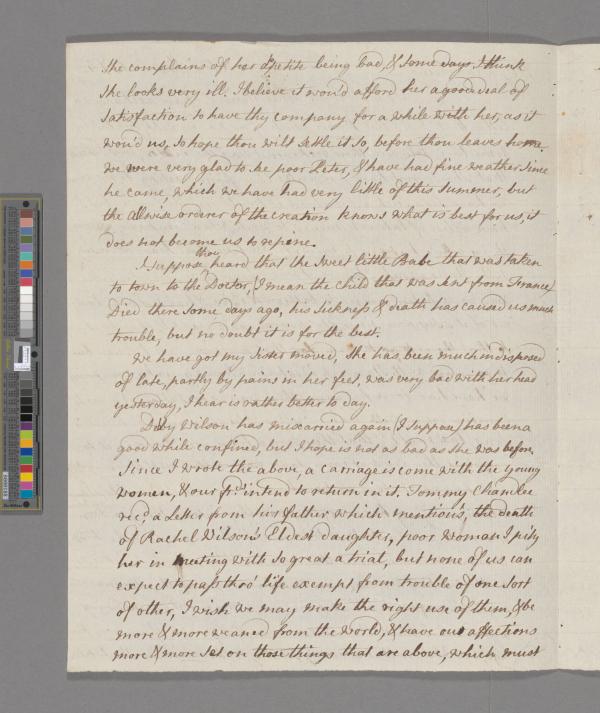 She complains of her Apetite being bad, & some days I think
She looks very ill. I believe it wou'd afford her a good deal of
satisfaction to have thy company for a while with her, as it
wou'd us, so hope thou wilt settle it so, before thou leaves home,
we were very glad to see poor Peter, & have had fine weather since
he came, which we have had very little of this summer, but
the Allwise orderer of the creation knows what is best for us, it
does not become us to repene.
I suppose thou heard that the sweet little Babe that was taken
to town to the Doctor, I mean the child that was sent from France
Died there some days ago, his sickness & death has caused us much
trouble, but no doubt it is for the best.
We have got my Sister moved, She has been much indisposed
of late, partly by pains in her feet, was very bad with her head
yesterday, I hear is rather better to day.
Wilson has miscarried again (I suppose) has been a
good while confined, but I hope is not as bad as she was before,
Since I wrote the above, a carriage is come with the young
women, & our frds intend to return in it. Tommy Chamlee
recd a Letter from his father which mention's, the death
of Rachel Wilson's Eldest daughter, poor woman I pity
her in meeting with so great a trial, but none of us can
expect to pass thro' life exempt from trouble of one sort
of other, I wish we may make the right use of them, & be
more & more weaned from the world, & have our affections
more & more set on those things that are above, which must